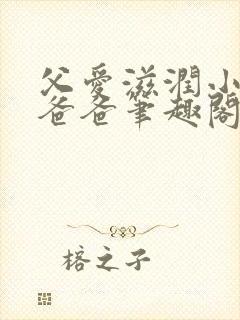 父愛滋潤小
爸爸筆趣閣
榕之子